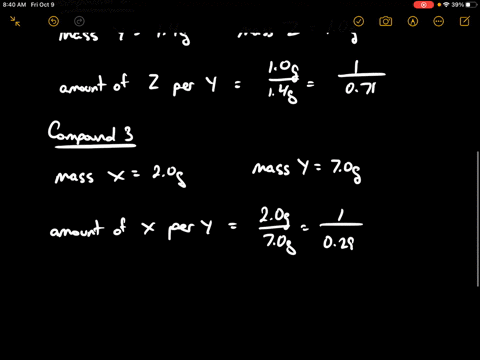 8:40 AM Fri Oct 9
39%
mass
amount of Z per Y = 1.0g / 1.4g = 1 / 0.71
Compound 3
mass X = 2.0g mass Y = 7.0g
amount of X per Y = 2.0g / 7.0g = 1 / 0.29